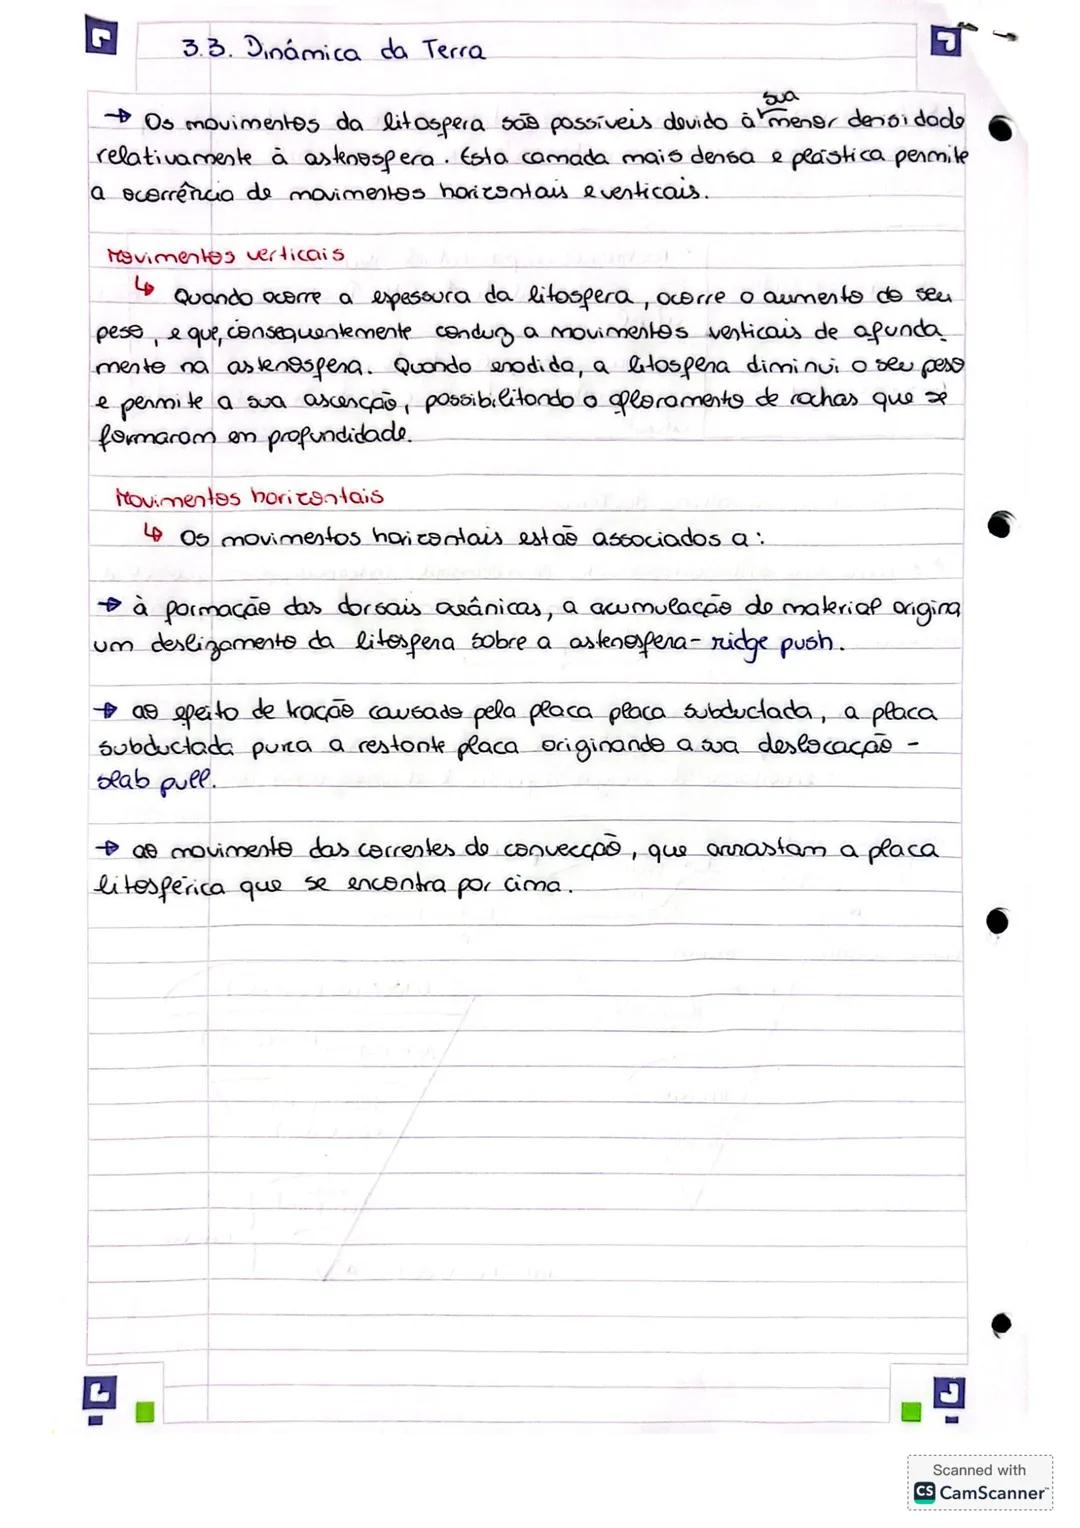 3.3. Dinámica da Terra
sua
→ Os movimentos da litosfera são possíveis devido à menor densidade
relativamente à astenosfera. Esta camada mais densa e plástica permite
a ocorrência de movimentos horizontais e verticais.
Movimentos verticais
↳ Quando ocorre a espessura da litosfera, ocorre o aumento do seu
peso, e que, consequentemente conduz a movimentos verticais de afunda
mento na astenosfera. Quando erodida, a litosfera diminui o seu peso
e permite a sua ascenção, possibilitando o afloramento de rochas que se
formaram em profundidade.
Movimentos horizontais
↳ Os movimentos horizontais estão associados a:
→ à formação das dorsais oceânicas, a acumulação de material origina
um deslizamento da litosfera sobre a astenosfera - ridge push.
→ ao efeito de tração causado pela placa placa subductada, a placa
subductada puxa a restante placa originando a sua deslocação -
slab pull.
→ ao movimento das correntes de convecção, que arrastam a placa
litosférica que se encontra por cima.
Scanned with
CS CamScanner